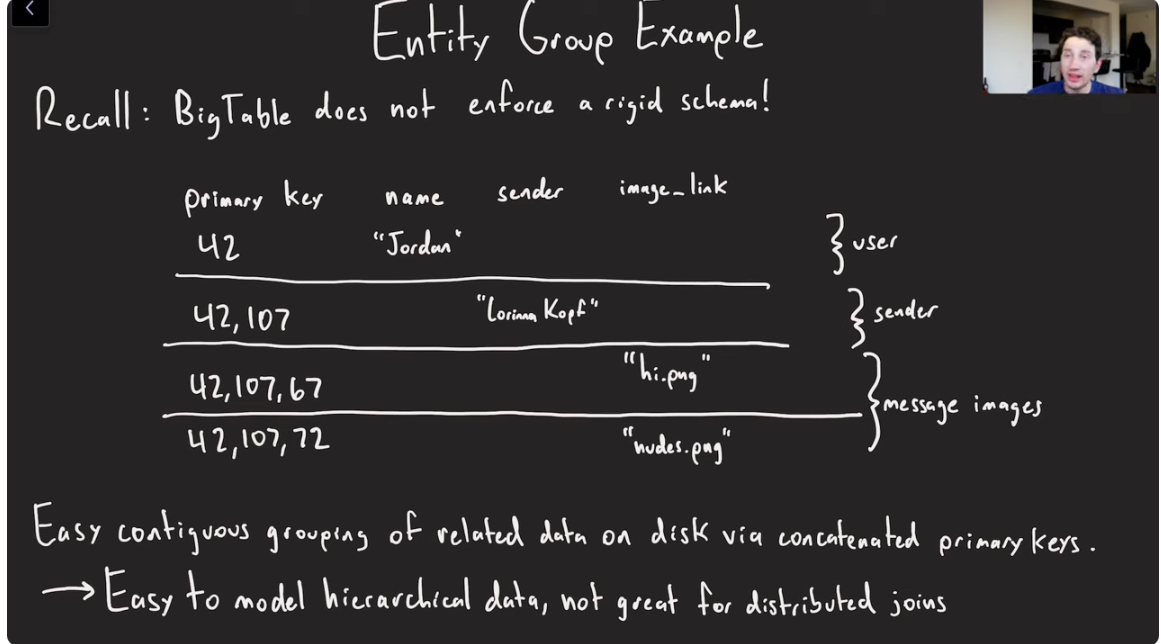 Entity Group Example
Recall: BigTable does not enforce a rigid schema!
primary key name sender image_link
42 "Jordan" } user
42,107 "Corinna Kopf" } sender
42,107,67 "hi.png"
} message images
42,107,72 "nudes.png"
Easy contiguous grouping of related data on disk via concatenated primary keys.
→ Easy to model hierarchical data, not great for distributed joins